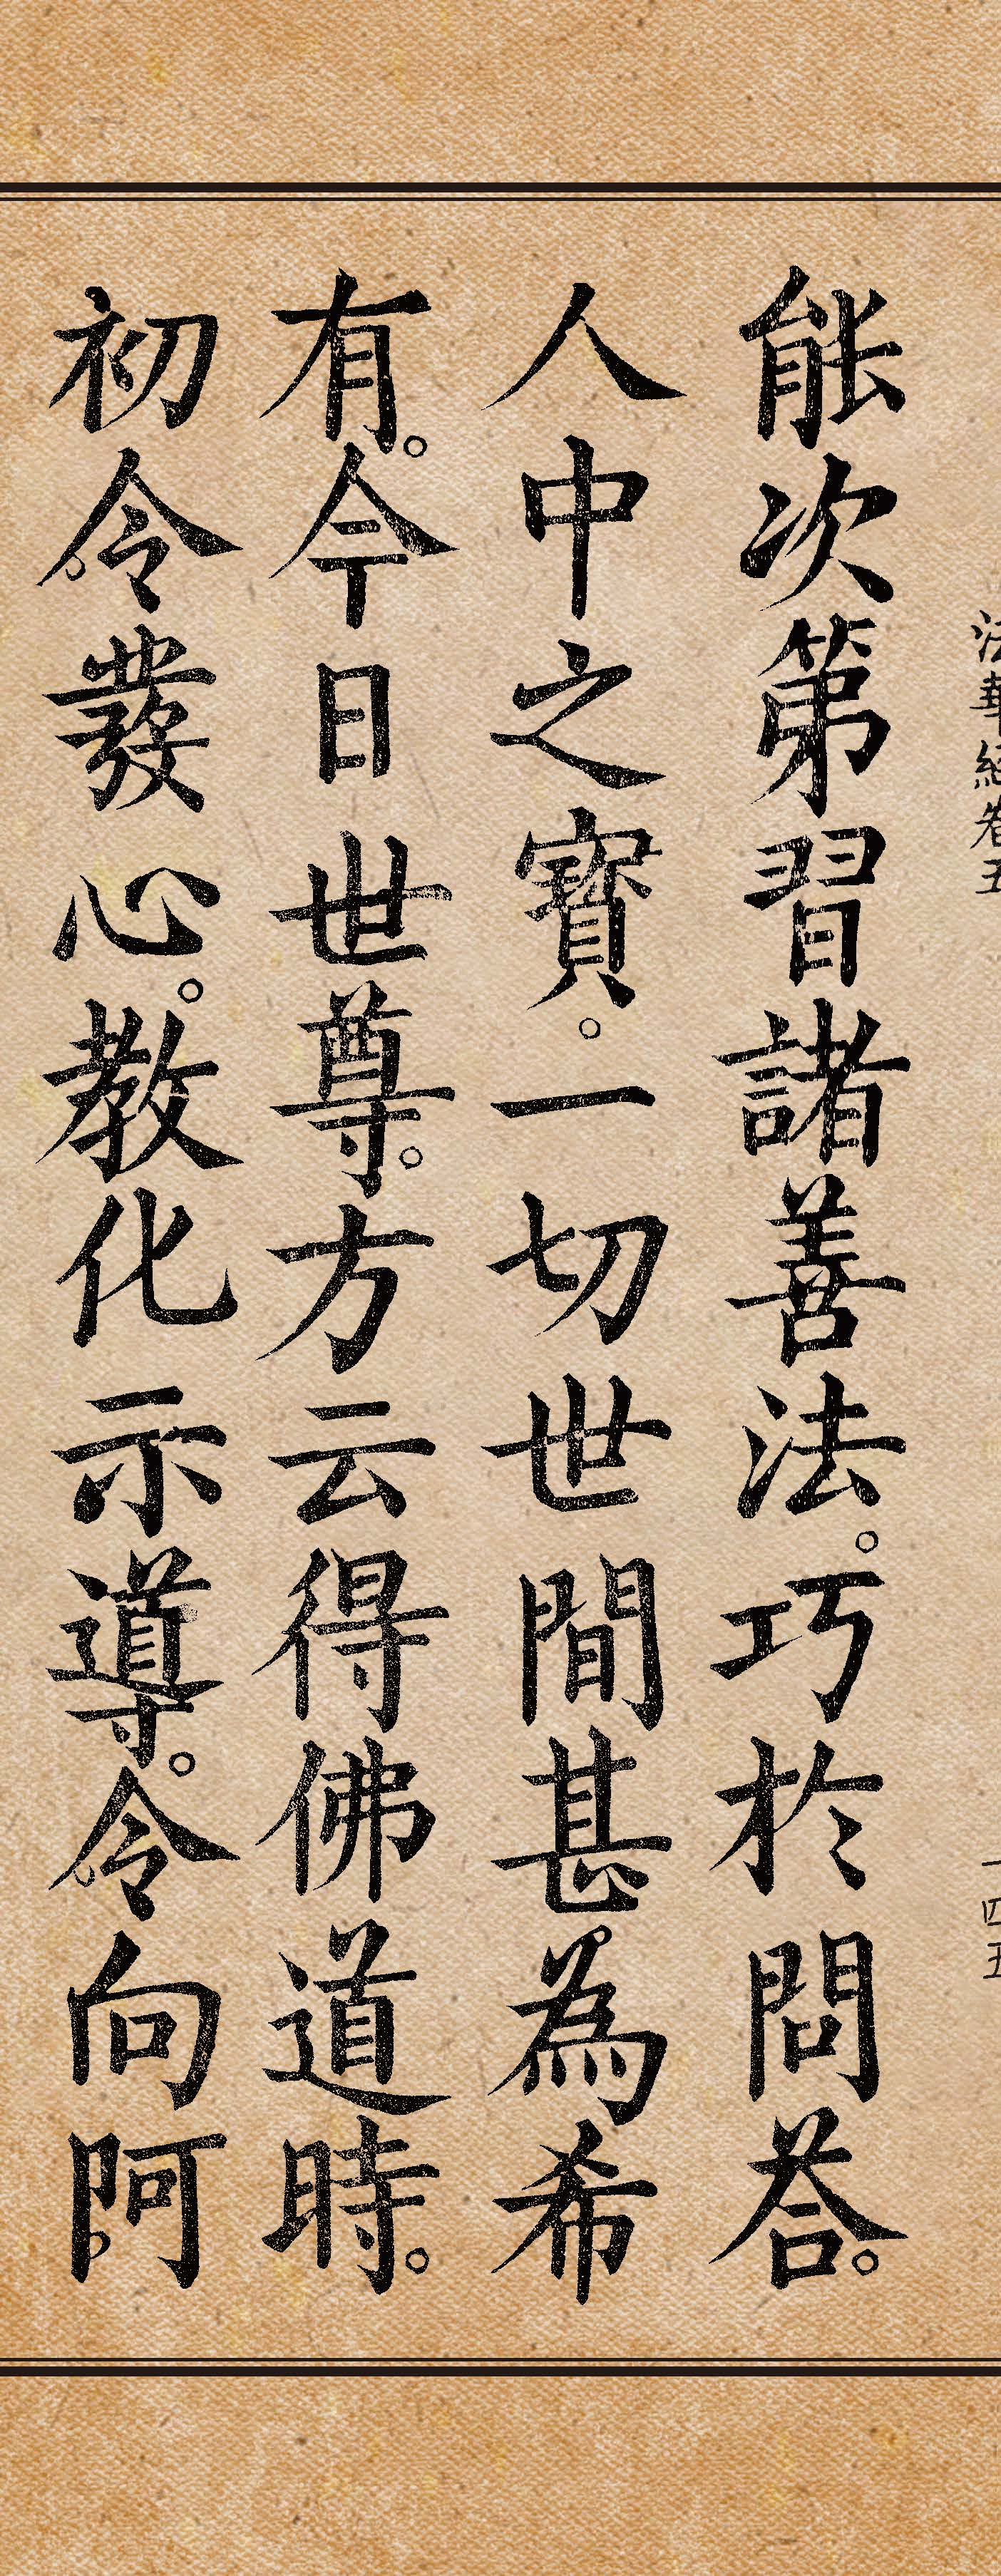 法華經卷五
一四五
能次第習諸善法。巧於問荅。
人中之寶。一切世間甚為希
有。今日世尊。方云得佛道時。
初令發心。教化示導。令向阿